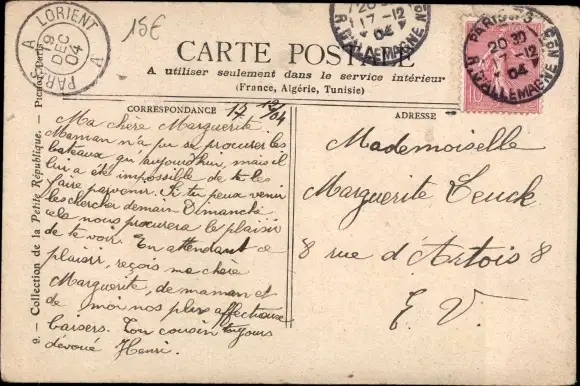 15E
LORIENT A PARIS A
19
DEC
04
PARIS 3
R. D'ALLEMAGNE
20 30
17-12
04
CARTE POSTALE
A utiliser seulement dans le service intérieur
(France, Algérie, Tunisie)
CORRESPONDANCE
ADRESSE
17 12/04
Ma chère Marguerite.
Maman n'a pu se procurer les
bateaux qu'aujourd'hui, mais il
lui a été impossible de te les
faire parvenir. Si tu peux venir
les chercher demain Dimanche
cela nous procurera le plaisir
de te voir. En attendant ce
plaisir, reçois ma chère
Marguerite, de maman et
de moi nos plus affectueux
baisers. Ton cousin toujours
dévoué Henri.
Mademoiselle
Marguerite
8 rue d'Artois 8
E. V.
9. — Collection de la Petite République. —